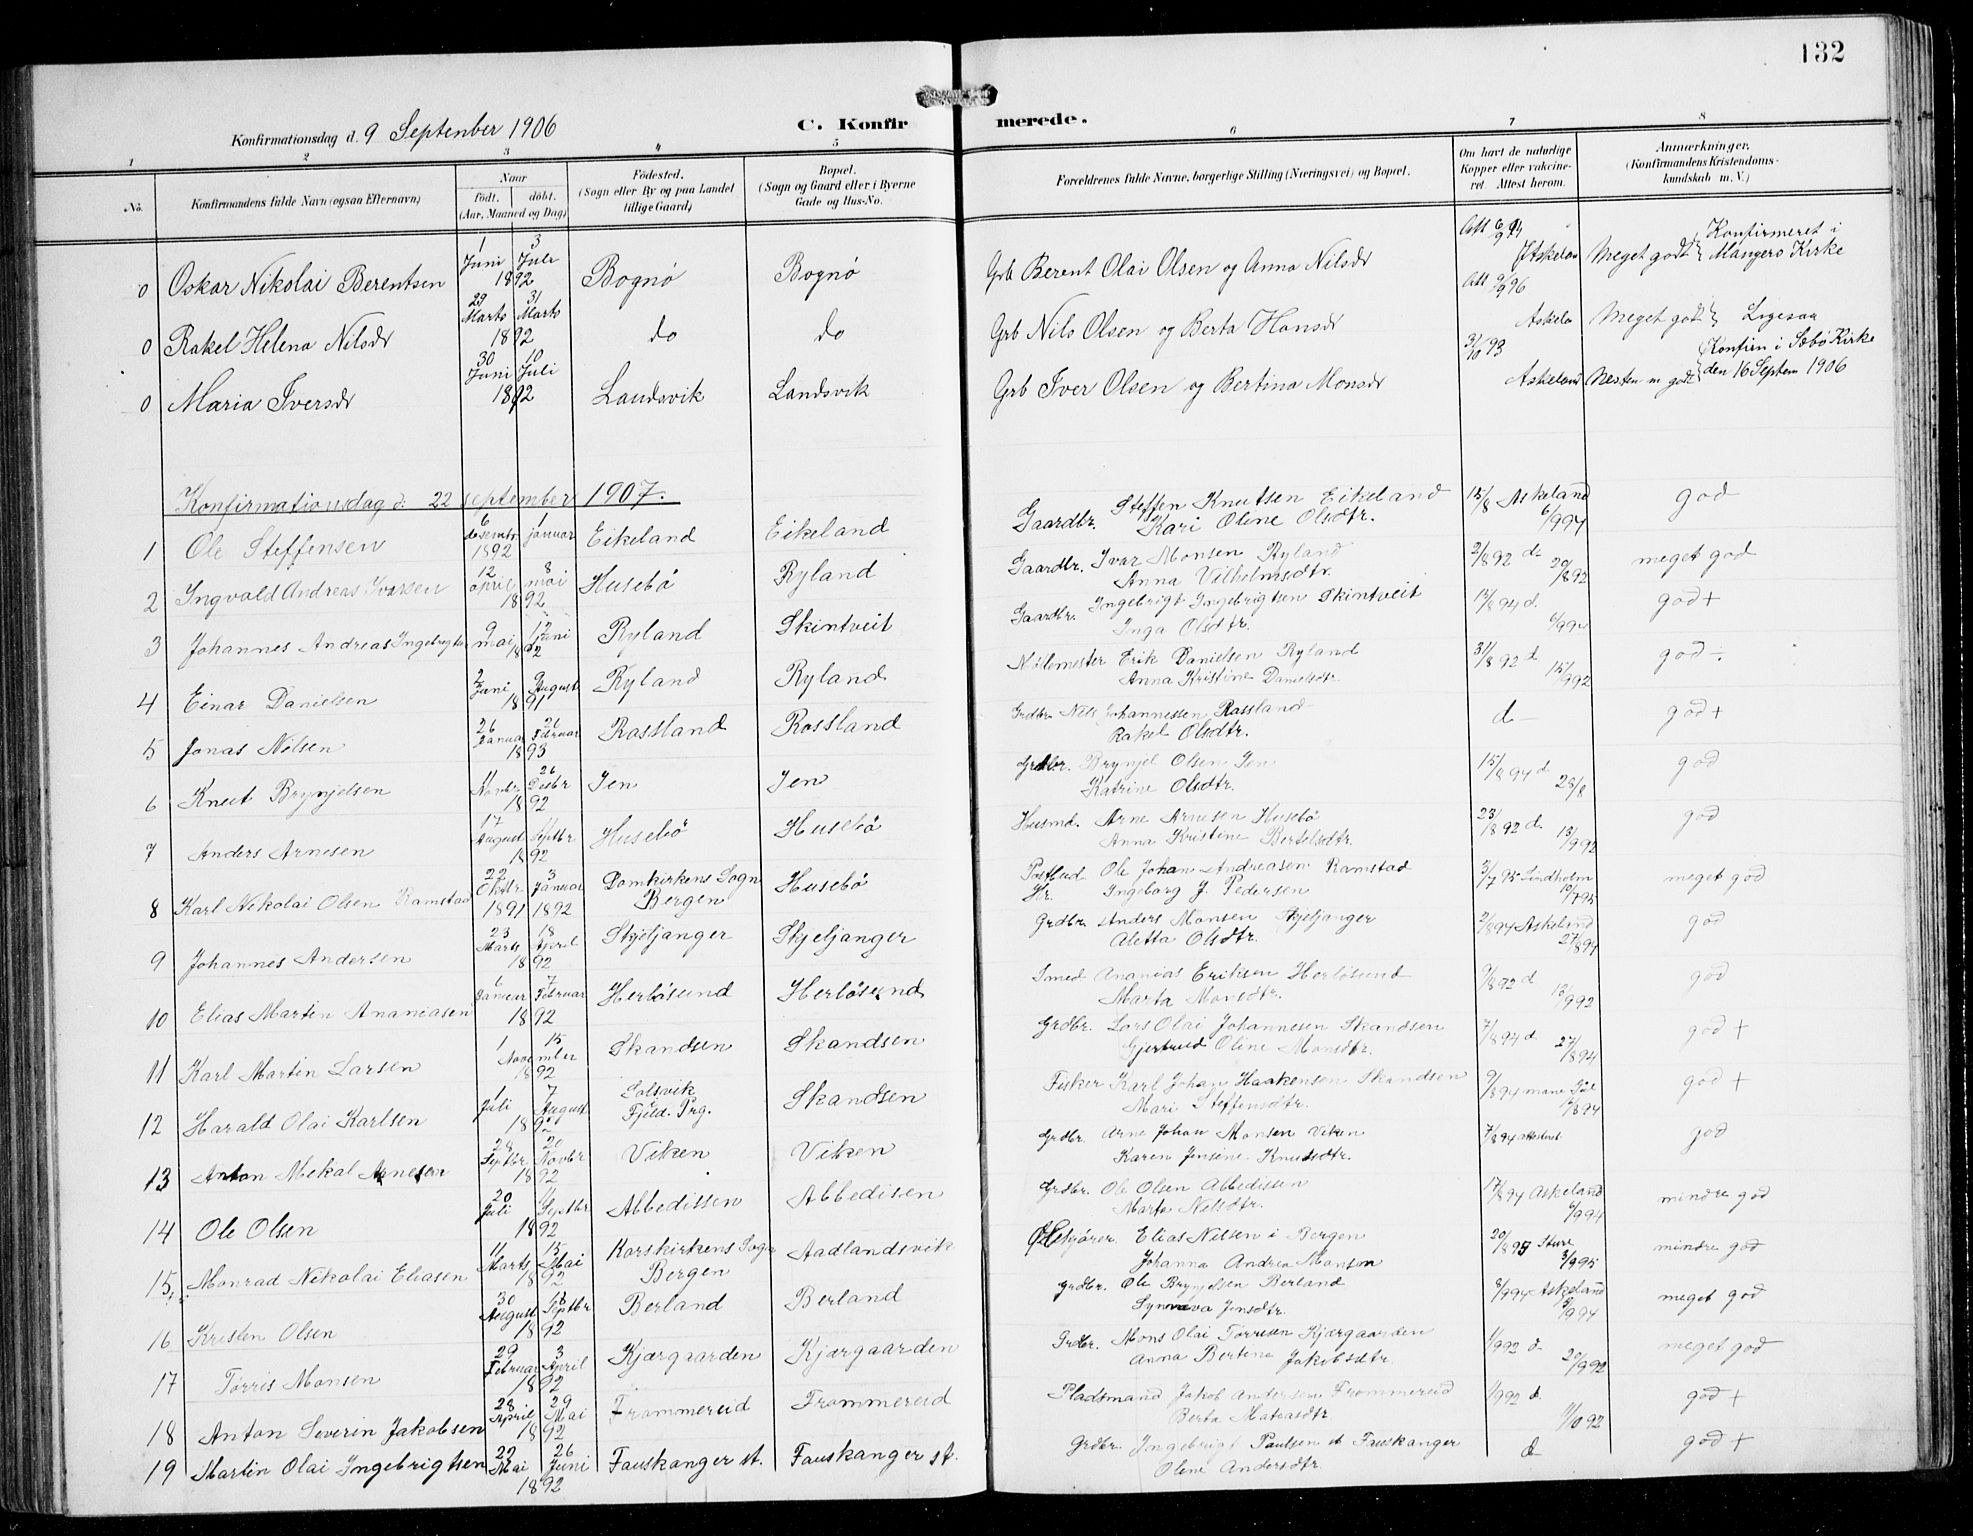 132
Konfirmationsdag d. 9 September 1906
C. Konfirmerede.
1 2 3 4 5 6 7 8
No. Konfirmandens fulde Navn (ogsaa Efternavn) Naar født. døbt. (Aar, Maaned og Dag) Fødested. (Sogn eller By og paa Landet tillige Gaard) Bopæl. (Sogn og Gaard eller i Byerne Gade og Hus-No. Forældrenes fulde Navne, borgerlige Stilling (Næringsvei) og Bopæl. Om havt de naturlige Kopper eller vakcineret. Attest herom. Anmærkninger. (Konfirmandens Kristendomskundskab m. V.)
0 Oskar Nikolai Berentsen 1 Juni 3 Juli 1892 Bognø Bognø Grb Berent Olai Olsen og Anna Nilsdr Att 6/9 94 Meget godt Konfirmeret i Mangers Kirke
0 Rakel Helena Nilsdr 29 Marts 31 Marts 1892 do do Grb Nils Olsen og Berta Hansdr Att 2/9 96 Askela Meget godt Ligesaa
0 Maria Iversdr 30 Juni 10 Juli 1892 Landsvik Landsvik Grb Iver Olsen og Bertina Monsdr 31/10 93 Askeland Nesten m godt Konfirm i Sæbø Kirke den 16 Septem 1906
Konfirmationsdag d: 22 september 1907.
1 Ole Steffensen 6 desembr 1 januar 1892 Eikeland Eikeland Gaardbr. Steffen Knutsen Eikeland Kari Oline Olsdtr. 15/8 Askeland 6/9 94 god
2 Ingvald Andreas Ivarsen 12 april 8 mai 1892 Husebø Ryland Gaardbr. Ivar Monsen Ryland Anna Vilhelmsdtr. 2/8 92 d 20/8 92 meget god
3 Johannes Andreas Ingebrigts 9 mai 12 juni 1892 Ryland Skintveit Gaardbr. Ingebrigt Ingebrigtsen Skintveit Inga Olsdtr. 17/8 94 d. 6/9 94 god +
4 Einar Danielsen 2 Juni 9 August 1891 Ryland Ryland Nølemester Erik Danielsen Ryland Anna Kristine Danielsdtr. 31/8 92 d 15/9 92 god ÷
5 Jonas Nilsen 26 Januar 26 Februar 1893 Rossland Rossland Grdbr. Nils Johannessen Rossland Rakel Olsdtr. d god +
6 Knut Brynjelsen 11 Novbr 26 Decbr 1892 Jen Jen Grdbr. Brynjel Olsen Jen Katrine Olsdtr. 15/8 94 d 28/8 god
7 Anders Arnesen 17 August 11 Septbr 1892 Husebø Husebø Husmd. Arne Arnesen Husebø Anna Kristine Bertelsdtr. 23/8 92 d. 13/9 92 god
8 Karl Nikolai Olsen Ramstad 22 Oktbr 3 Januar 1891 1892 Domkirkens Sogn Bergen Husebø Postbud Ole Johan Andreasen Ramstad Hr. Ingeborg J. Pedersen 3/7 95 Lindholm 10/7 95 meget god
9 Johannes Andersen 23 Marts 18 April 1892 Skjeljanger Skjeljanger Grdbr. Anders Monsen Skjeljanger Aletta Olsdtr. 2/8 94 Askeland 27/8 94 god
10 Elias Martin Ananiasen 6 Januar 7 Februar 1892 Herløsund Herløsund Smed Ananias Eriksen Herløsund Marta Monsdtr. 9/8 92 d 13/9 92 god
11 Karl Martin Larsen 1 15 November 1892 Skandsen Skandsen Grdbr. Lars Olai Johannesen Skandsen Gjertrud Oline Monsdtr. 7/8 94 d 27/8 94 god +
12 Harald Olai Karlsen 1 Juli 7 August 1892 Solsvik Fjeld Prg. Skandsen Fisker Karl Johan Haakensen Skandsen Mari Steffensdtr. 9/8 94 god +
13 Anton Mikal Arnesen 28 Septbr 20 Novbr 1892 Viken Viken Grdbr. Arne Johan Monsen Viken Karen Jensine Knutsdtr. 7/8 94 attesteret god
14 Ole Olsen 20 Juli 11 Septbr 1892 Abbedissen Abbedisen Grdbr. Ole Olsen Abbedissen Marta Nilsdtr. 17/8 94 Askeland 6/9 94 mindre god
15 Monrad Nikolai Eliasen 11 Marts 15 Mai 1892 Korskirkens Sogn Bergen Aadlandsvik Elias Nilsen i Bergen Johanna Andrea Monsen 20/8 95 Sture 3/9 95 mindre god
16 Kristen Olsen 30 August 18 Septbr 1892 Berland Berland Grdbr. Ole Brynjelsen Berland Synneva Jensdtr. 8/9 94 Askeland 8/9 94 meget god
17 Tørris Monsen 29 Februar 3 April 1892 Kjærgaarden Kjærgaarden Grdbr. Mons Olai Tørrisen Kjærgaarden Anna Bertine Jakobsdtr. 1/9 92 d 20/9 92 meget god
18 Anton Severin Jakobsen 28 April 29 Mai 1892 Frommereid Frommereid Pladsmand Jakob Andersen Frommereid Berta Matiasdtr. 1/9 92 d. 11/10 92 god +
19 Martin Olai Ingebrigtsen 22 Mai 26 Juni 1892 Fauskanger st. Fauskanger st. Grdbr. Ingebrigt Paulsen st Fauskanger Oline Andersdtr. d god +